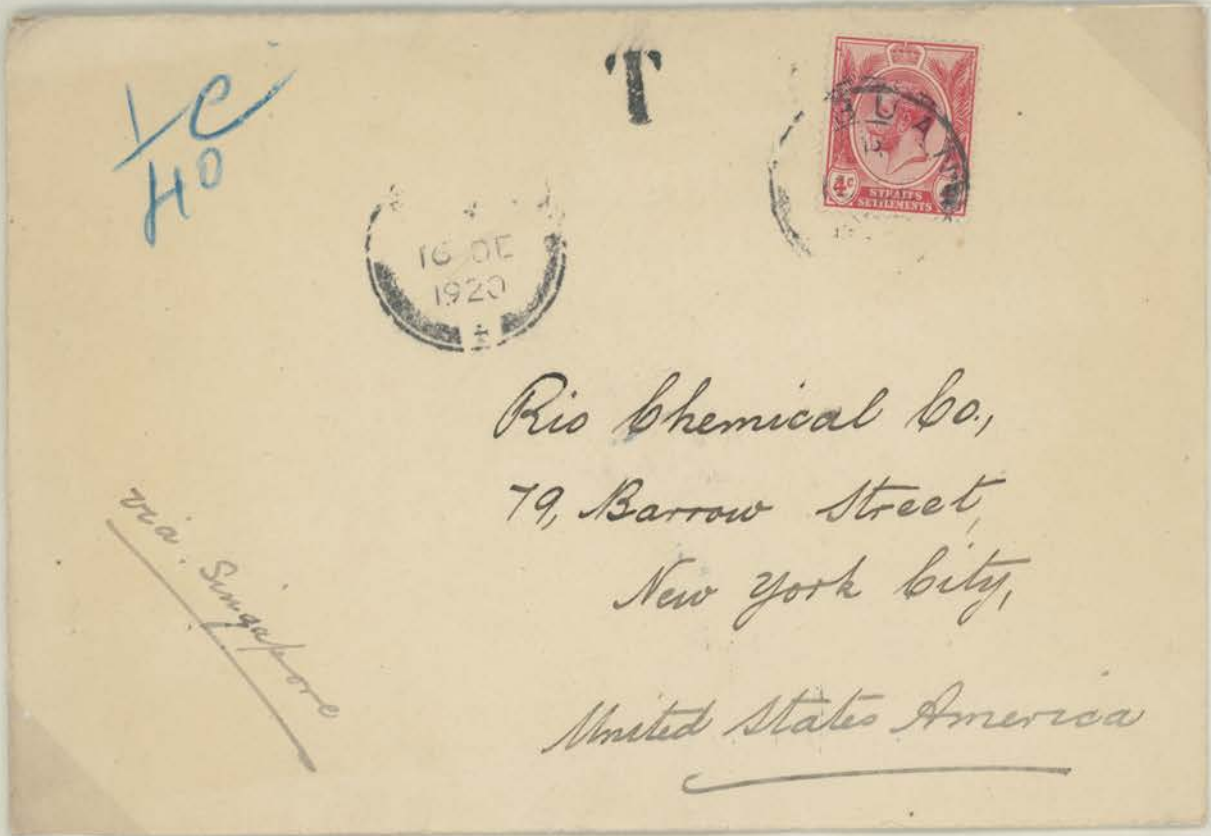 1c
40
T
4c
STRAITS
SETTLEMENTS
16 DE
1920
Rio Chemical Co.,
79, Barrow Street,
New York City,
United States America
via. Singapore